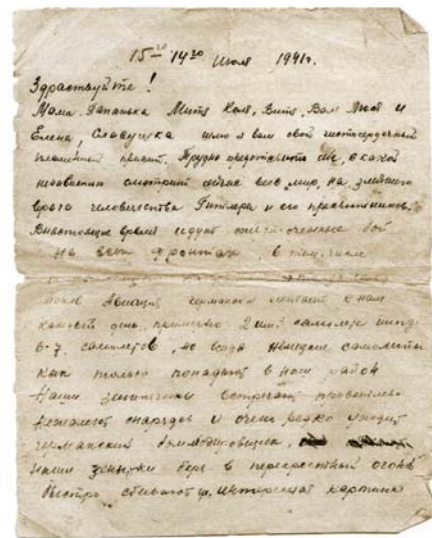 15 – 14 20 Июля 1941г.
Здраствуйте!
Мама, Папанька Митя Коля, Витя, Вам Люся и
Елена, Славушка шлю я вам свой чистосердечный
пламенный привет. Трудно представить себе, с какой
ненавистью смотрит сейчас весь мир, на злейшего
врага человечества Гитлера и его приспешников.
Внастоящее время идут ожесточенные бой
на всех фронтах, в том, числе
Авиация германская летает к нам
каждый день, примерно 2 или 3 самолета иногда
6-7 самолетов, но когда Немецкие самолеты
как только попадают в наш район
Наши зенитчики встречают
снарядов и очень редко уходит
германский бомбардировщик,
наши зенитки беря в перекрестный огонь
быстро сбивают и, интересная картина